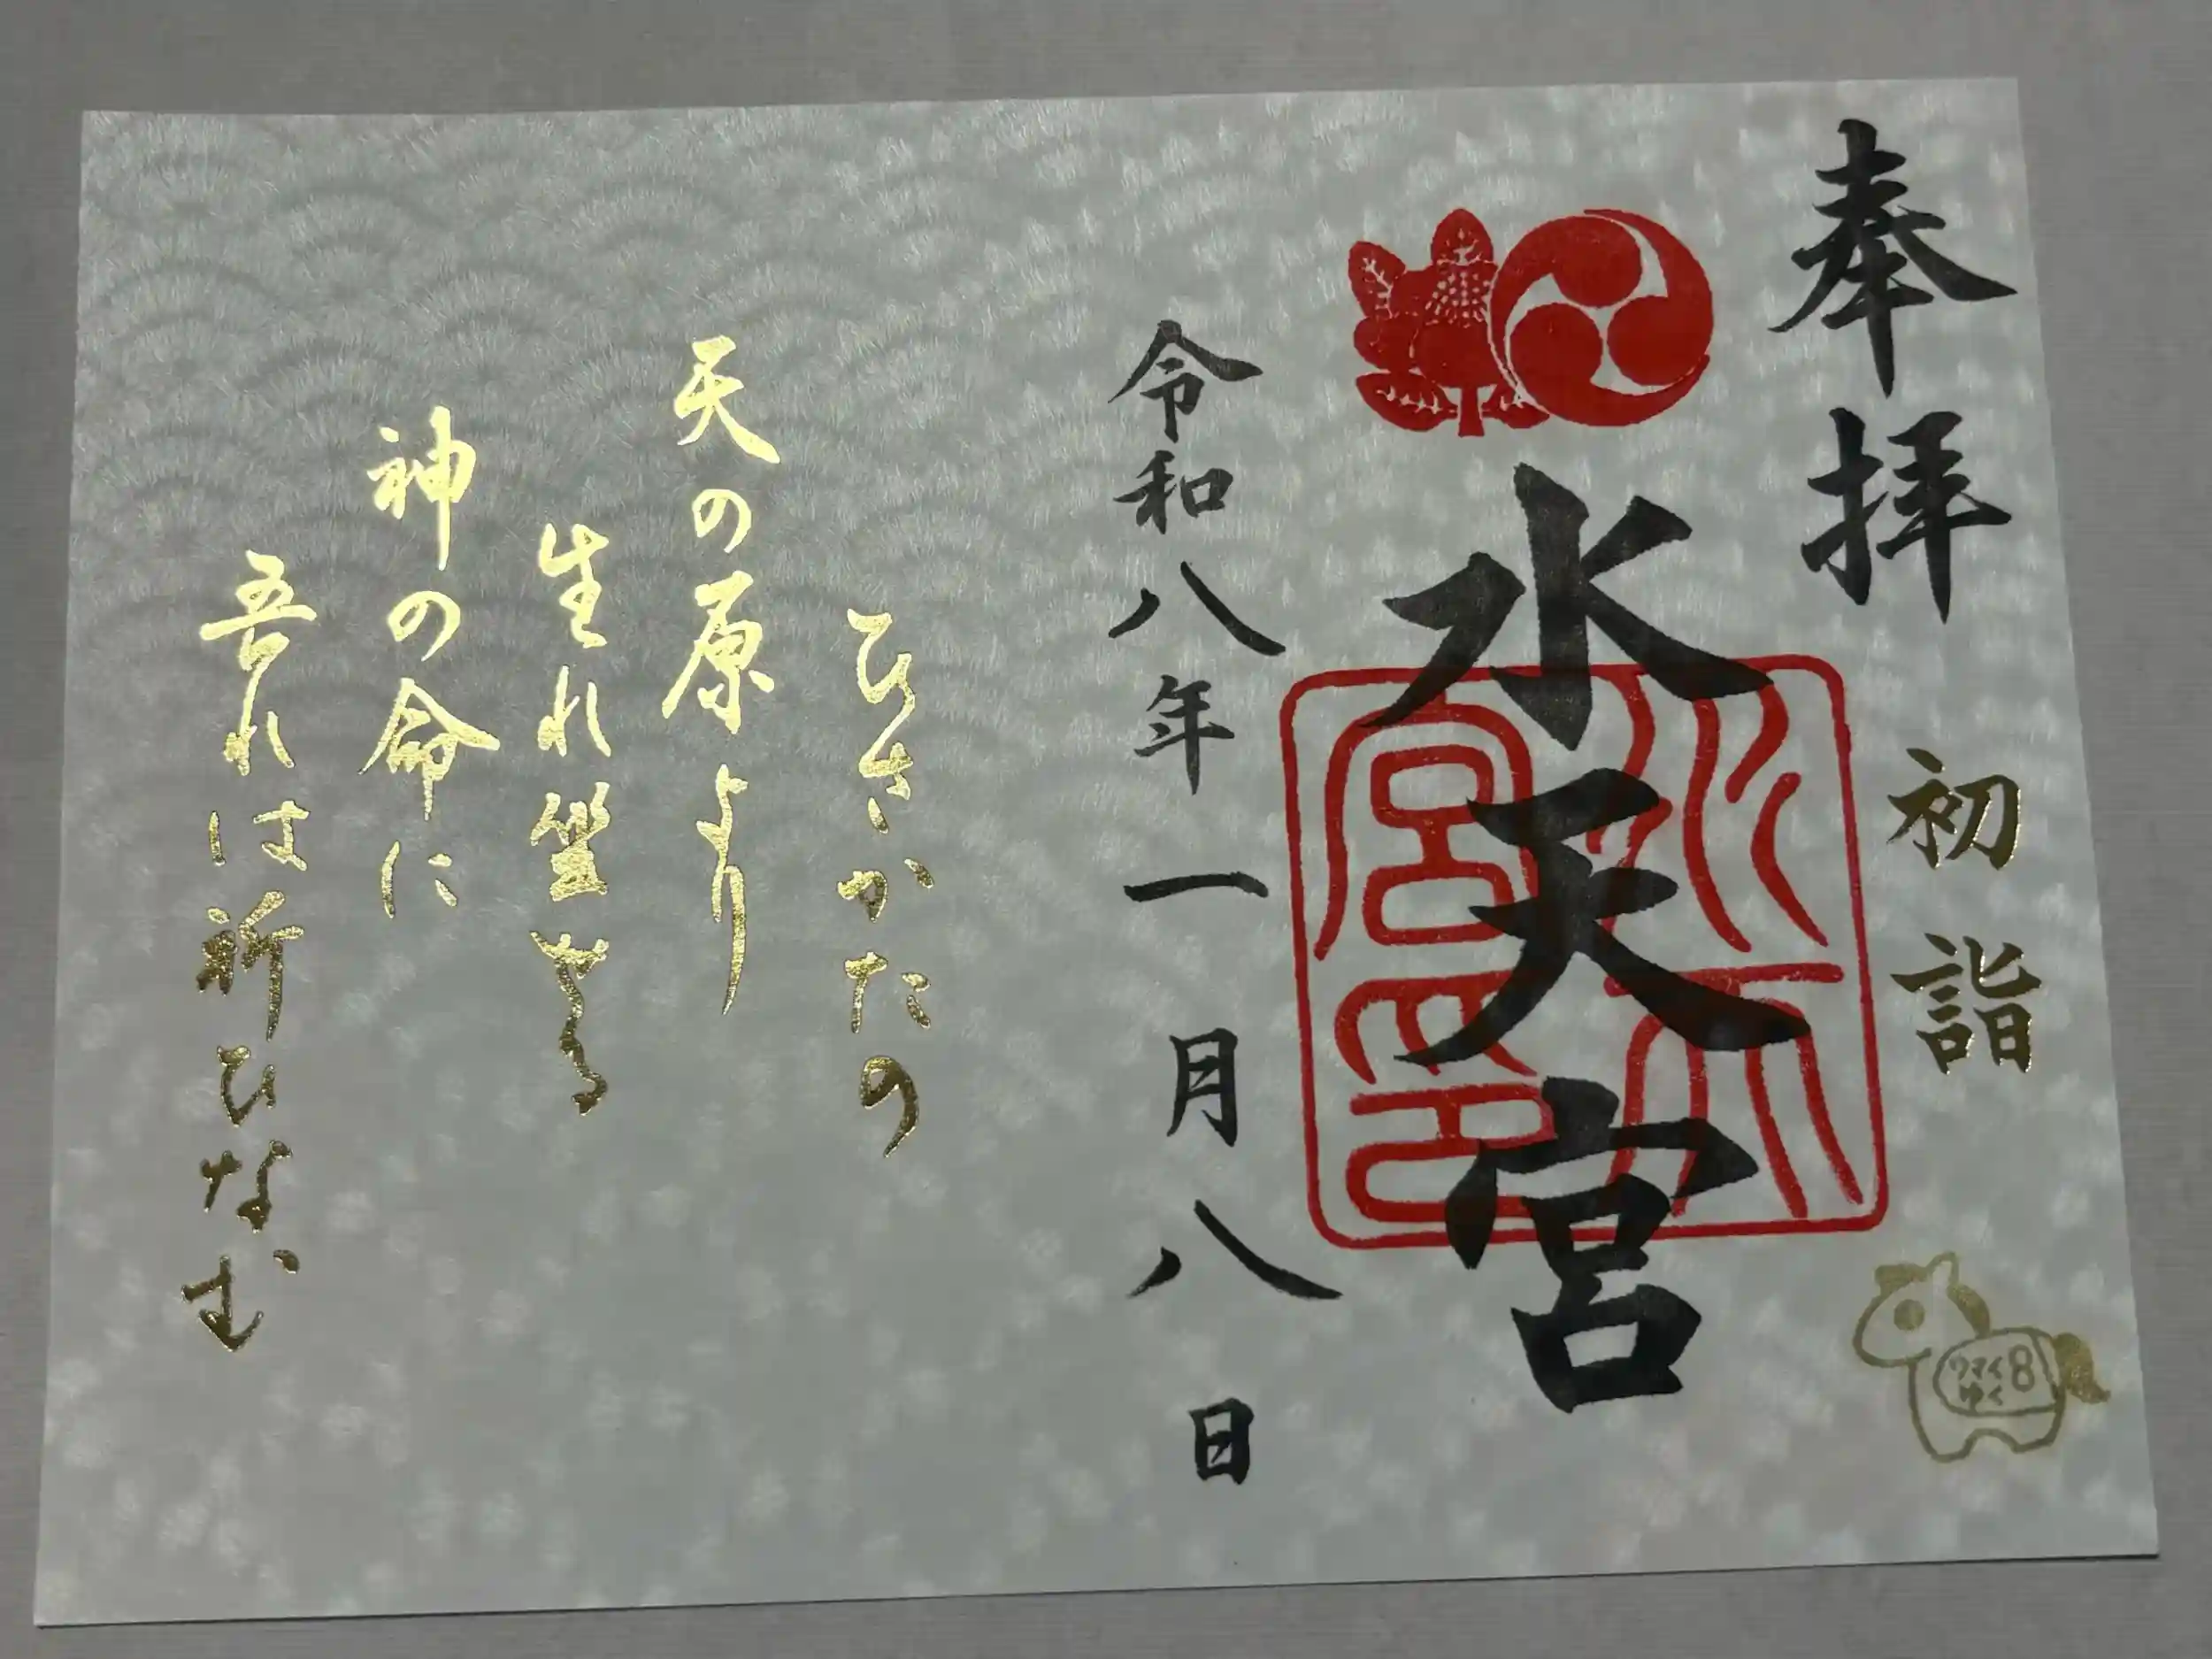 奉拝
初詣
ウマく
ゆく8
水天宮
水天宮印
令和八年一月八日
ひさかたの
天の原より
生れ坐せる
神の命に
吾れは祈ひなむ